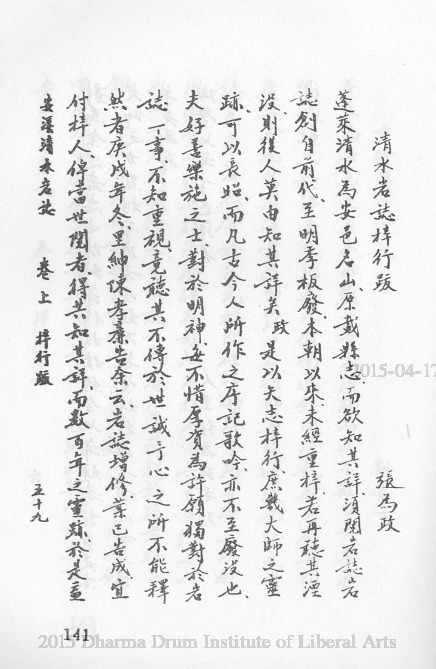 清水岩誌梓行跋
張為政
蓬萊清水為安邑名山、原載縣志、而欲知其詳、須閱岩誌、岩
誌創自前代、至明季板廢、本朝以來、未經重梓、若再聽其湮
沒、則後人莫由知其詳矣、政是以矢志梓行、庶幾大師之靈
跡、可以長昭、而凡古今人所作之序記歌吟、亦不至廢沒也、
夫好善樂施之士、對於明神、無不惜厚資為許願、獨對於岩
誌一事、不知重視、竟聽其不傳於世、誠予心之所不能釋
然者、庚戌年冬、里紳陳孝廉告余云、岩誌增修、業已告成、宜
付梓人、俾當世閱者得共知其詳、而數百年之靈跡、於是益
安溪清水岩誌 卷上 梓行跋 五十九
141
2015-04-17
2015 Dharma Drum Institute of Liberal Arts